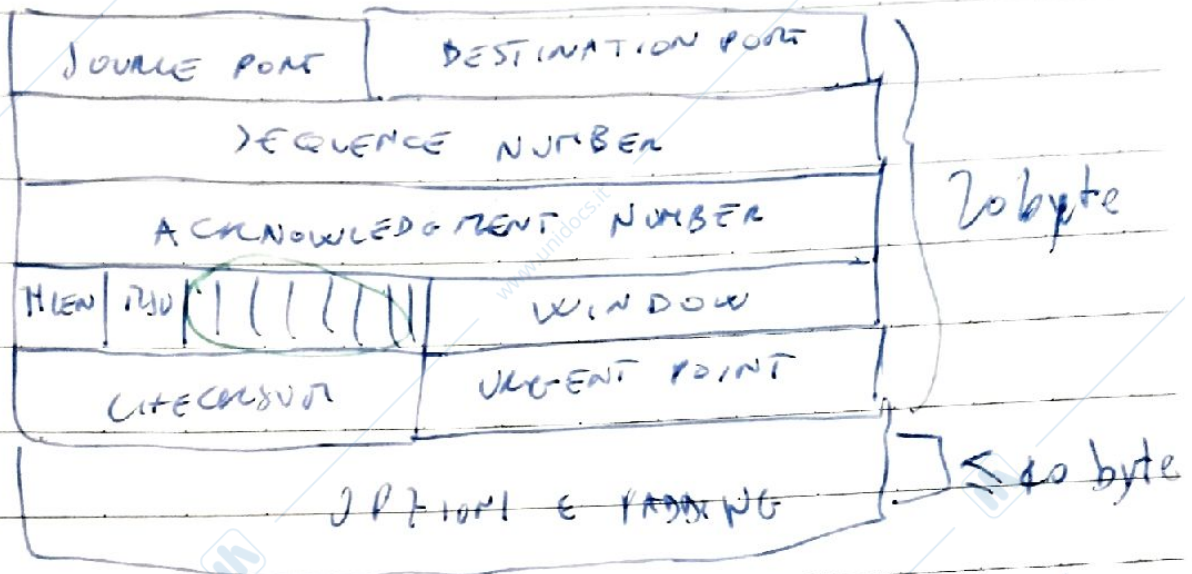 SOURCE PORT DESTINATION PORT
SEQUENCE NUMBER
ACKNOWLEDGMENT NUMBER
20 byte
HLEN WINDOW
CHECKSUM URGENT POINT
OPTIONI E PADDING ≤ 40 byte
www.unidocs.it